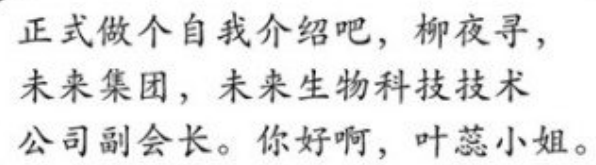 正式做个自我介绍吧，柳夜寻，
未来集团，未来生物科技技术
公司副会长。你好啊，叶蕊小姐。